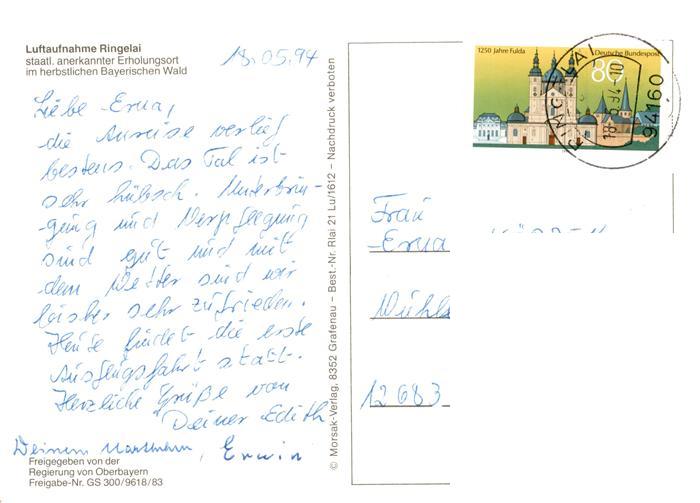 Luftaufnahme Ringelai
staatl. anerkannter Erholungsort
im herbstlichen Bayerischen Wald
18.05.94
Liebe Erna,
die Anreise verlief
bestens. Das Tal ist
sehr hübsch. Unterbrin-
gung und Verpflegung
sind gut und mit
dem Wetter sind wir
bisher sehr zufrieden.
Heute findet die erste
Ausflugsfahrt statt.
Herzliche Grüße von
Deiner Edith
Deinem, Erwin
Freigegeben von der
Regierung von Oberbayern
Freigabe-Nr. GS 300/9618/83
© Morsak-Verlag, 8352 Grafenau – Best.-Nr. Riai 21 Lu/1612 – Nachdruck verboten
1250 Jahre Fulda
Deutsche Bundespost
80
RINGELAI
94160
Frau
Erna
Mühls
12683